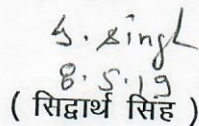 S. Singh
8.5.19
( सिद्वार्थ सिंह )